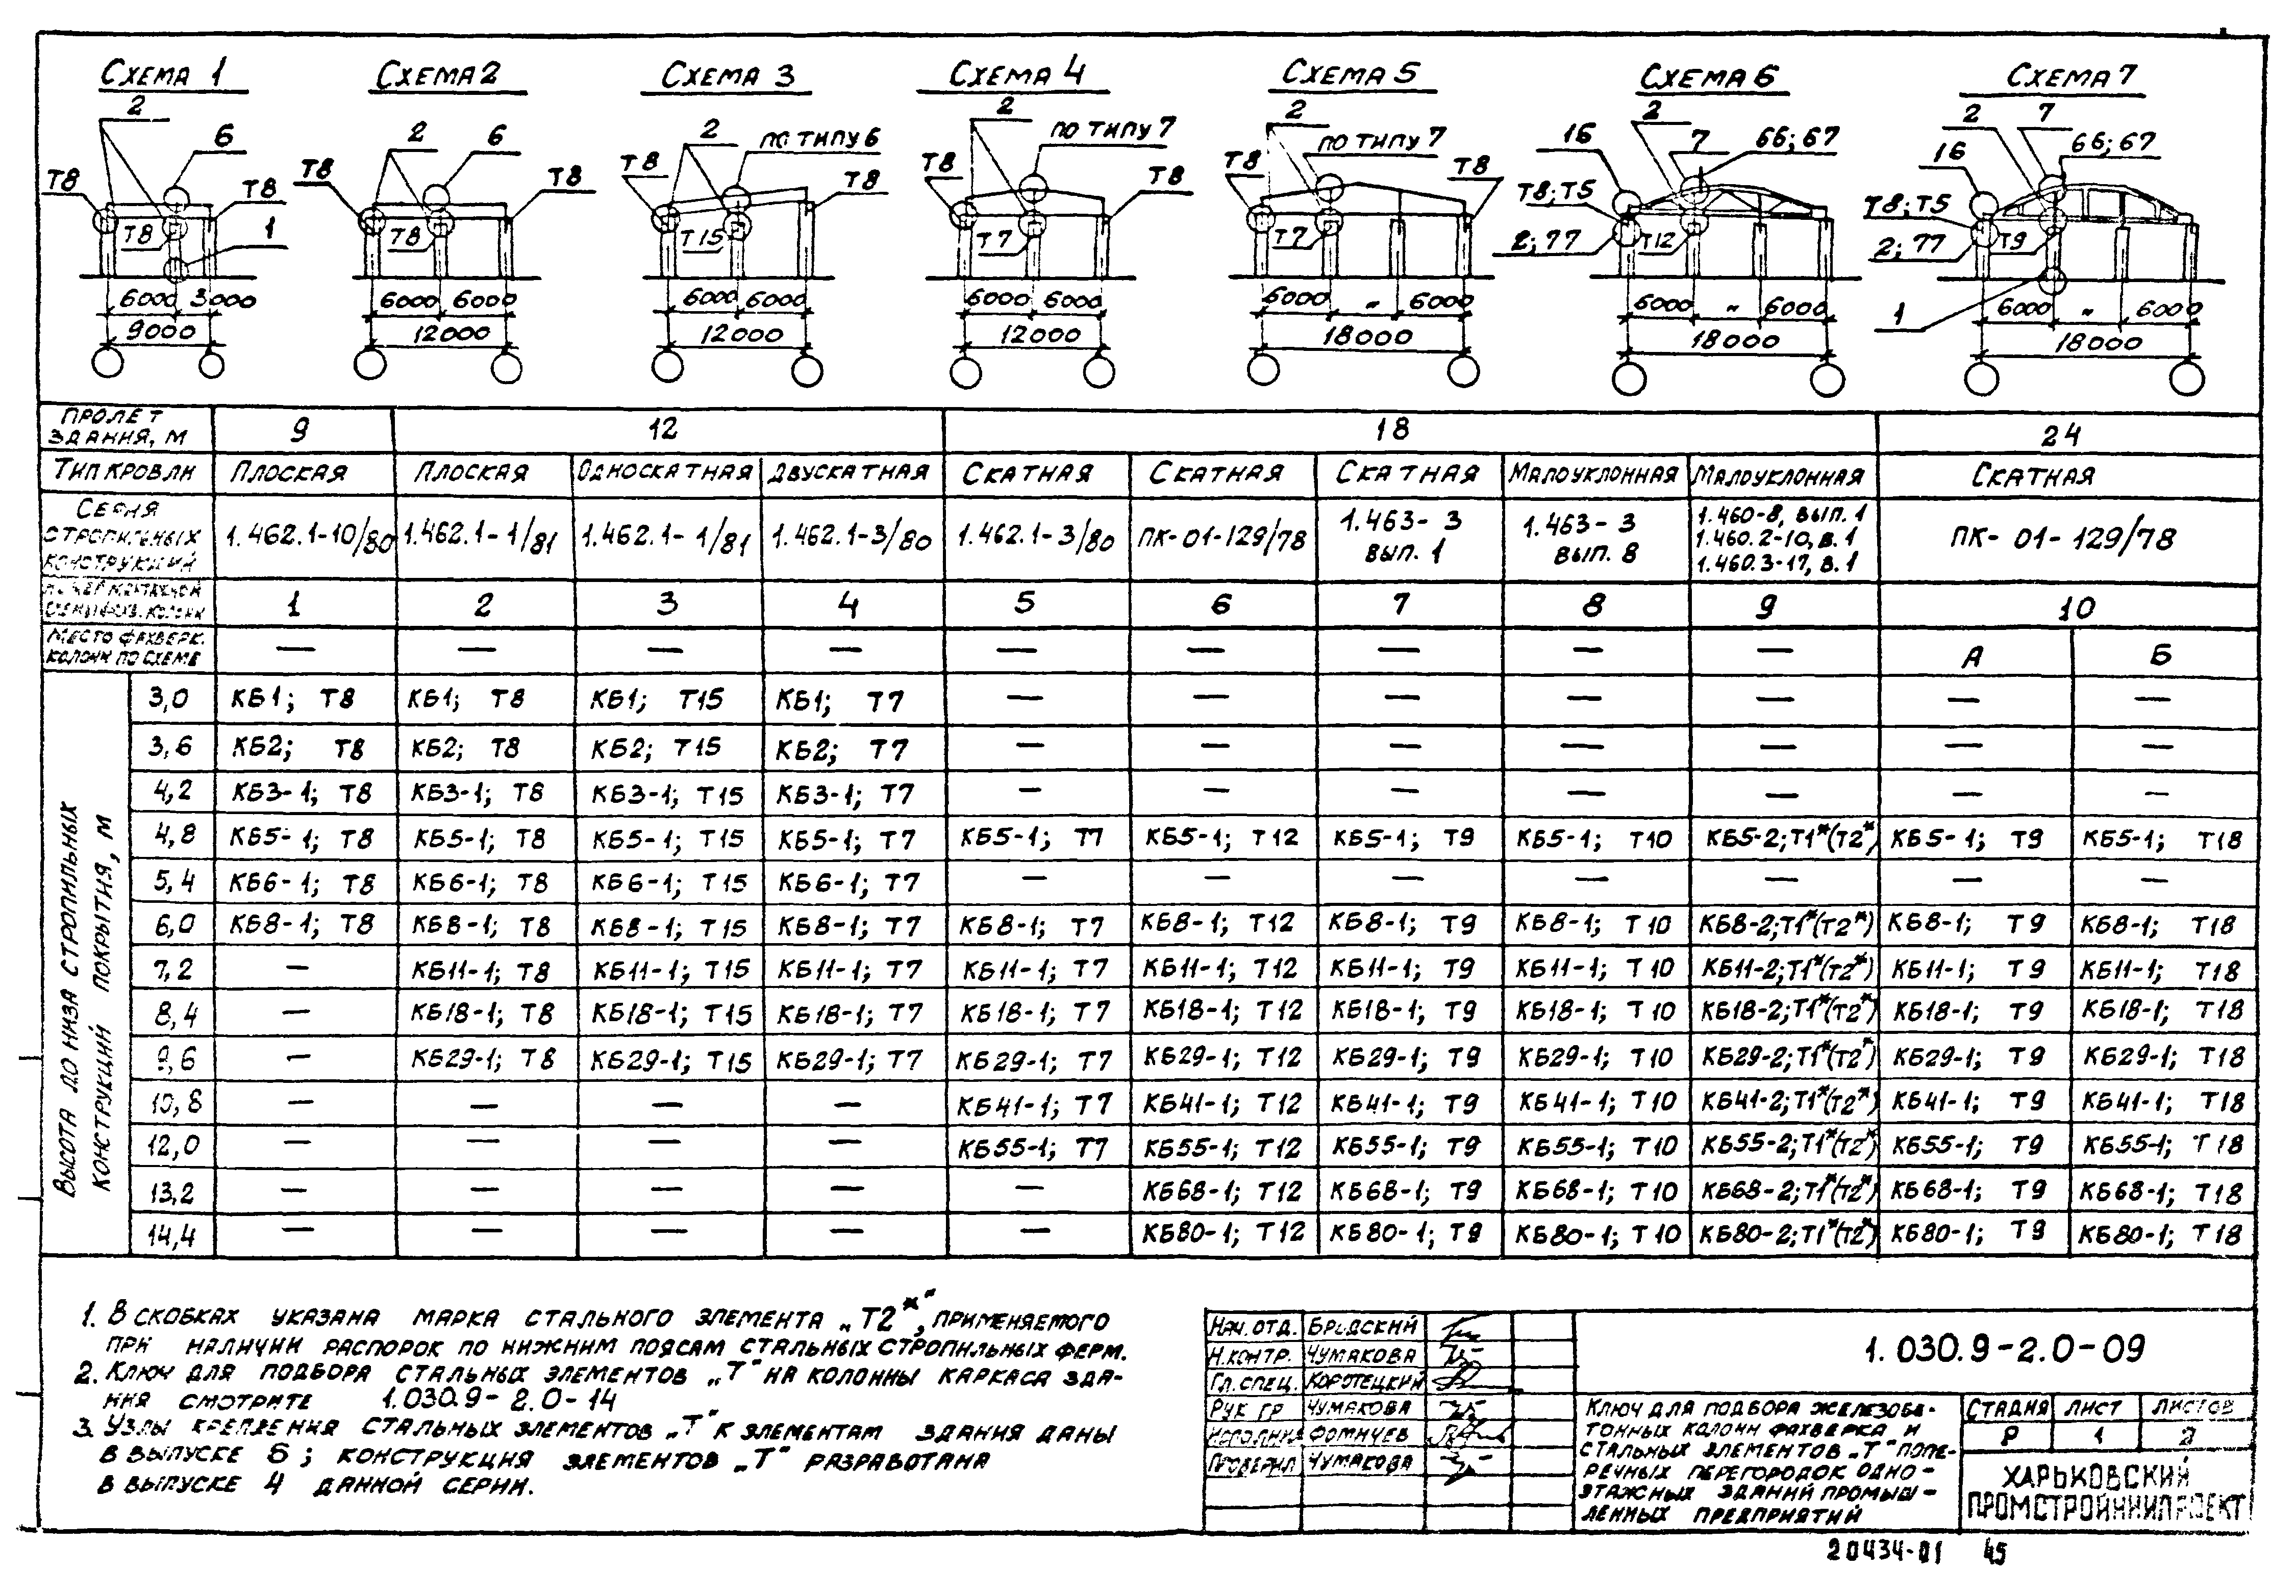 Схема 1
Схема 2
Схема 3
Схема 4
Схема 5
Схема 6
Схема 7
2 6 Т8 Т8 Т8 1
6000 3000
9000
2 6 Т8 Т8 Т8
6000 6000
12000
2 по типу 6 Т8 Т8 Т15
6000 6000
12000
2 по типу 7 Т8 Т8 Т7
6000 6000
12000
2 по типу 7 Т8 Т8 Т7
6000 " 6000
18000
16 2 7 66; 67 Т8; Т5 2; 77 Т12
6000 " 6000
18000
2 7 16 66; 67 Т8; Т5 2; 77 Т9 1
6000 " 6000
18000
Пролёт здания, м 9 12 18 24
Тип кровли Плоская Плоская Односкатная Двускатная Скатная Скатная Скатная Малоуклонная Малоуклонная Скатная
Серия стропильных конструкций 1.462.1-10/80 1.462.1-1/81 1.462.1-1/81 1.462.1-3/80 1.462.1-3/80 ПК-01-129/78 1.463-3 вып. 1 1.463-3 вып. 8 1.460-8, вып. 1 1.460.2-10, в. 1 1.460.3-17, в. 1 ПК-01-129/78
монтажной 1 2 3 4 5 6 7 8 9 10
Место фахверк. колонн по схеме — — — — — — — — — А Б
Высота до низа стропильных
конструкций покрытия, м
3,0 КБ1; Т8 КБ1; Т8 КБ1; Т15 КБ1; Т7 — — — — — — —
3,6 КБ2; Т8 КБ2; Т8 КБ2; Т15 КБ2; Т7 — — — — — — —
4,2 КБ3-1; Т8 КБ3-1; Т8 КБ3-1; Т15 КБ3-1; Т7 — — — — — — —
4,8 КБ5-1; Т8 КБ5-1; Т8 КБ5-1; Т15 КБ5-1; Т7 КБ5-1; Т7 КБ5-1; Т12 КБ5-1; Т9 КБ5-1; Т10 КБ5-2; Т1*(Т2*) КБ5-1; Т9 КБ5-1; Т18
5,4 КБ6-1; Т8 КБ6-1; Т8 КБ6-1; Т15 КБ6-1; Т7 — — — — — — —
6,0 КБ8-1; Т8 КБ8-1; Т8 КБ8-1; Т15 КБ8-1; Т7 КБ8-1; Т7 КБ8-1; Т12 КБ8-1; Т9 КБ8-1; Т10 КБ8-2; Т1*(Т2*) КБ8-1; Т9 КБ8-1; Т18
7,2 — КБ11-1; Т8 КБ11-1; Т15 КБ11-1; Т7 КБ11-1; Т7 КБ11-1; Т12 КБ11-1; Т9 КБ11-1; Т10 КБ11-2; Т1*(Т2*) КБ11-1; Т9 КБ11-1; Т18
8,4 — КБ18-1; Т8 КБ18-1; Т15 КБ18-1; Т7 КБ18-1; Т7 КБ18-1; Т12 КБ18-1; Т9 КБ18-1; Т10 КБ18-2; Т1*(Т2*) КБ18-1; Т9 КБ18-1; Т18
9,6 — КБ29-1; Т8 КБ29-1; Т15 КБ29-1; Т7 КБ29-1; Т7 КБ29-1; Т12 КБ29-1; Т9 КБ29-1; Т10 КБ29-2; Т1*(Т2*) КБ29-1; Т9 КБ29-1; Т18
10,8 — — — — КБ41-1; Т7 КБ41-1; Т12 КБ41-1; Т9 КБ41-1; Т10 КБ41-2; Т1*(Т2*) КБ41-1; Т9 КБ41-1; Т18
12,0 — — — — КБ55-1; Т7 КБ55-1; Т12 КБ55-1; Т9 КБ55-1; Т10 КБ55-2; Т1*(Т2*) КБ55-1; Т9 КБ55-1; Т18
13,2 — — — — — КБ68-1; Т12 КБ68-1; Т9 КБ68-1; Т10 КБ68-2; Т1*(Т2*) КБ68-1; Т9 КБ68-1; Т18
14,4 — — — — — КБ80-1; Т12 КБ80-1; Т9 КБ80-1; Т10 КБ80-2; Т1*(Т2*) КБ80-1; Т9 КБ80-1; Т18
1. В скобках указана марка стального элемента „Т2*", применяемого
при наличии распорок по нижним поясам стальных стропильных ферм.
2. Ключ для подбора стальных элементов „Т" на колонны каркаса зда-
ния смотрите 1.030.9-2.0-14
3. Узлы крепления стальных элементов „Т" к элементам здания даны
в выпуске 6; конструкция элементов „Т" разработана
в выпуске 4 данной серии.
Нач. отд. Бродский
Н. контр. Чумакова
Гл. спец. Коротецкий
Рук. гр. Чумакова
Исполнил Фомичев
Проверил Чумакова
1.030.9-2.0-09
Ключ для подбора железобе-
тонных колонн фахверка и
стальных элементов „Т" попе-
речных перегородок одно-
этажных зданий промыш-
ленных предприятий
Стадия Лист Листов
Р 1 2
Харьковский
Промстройниипроект
20434-01 45